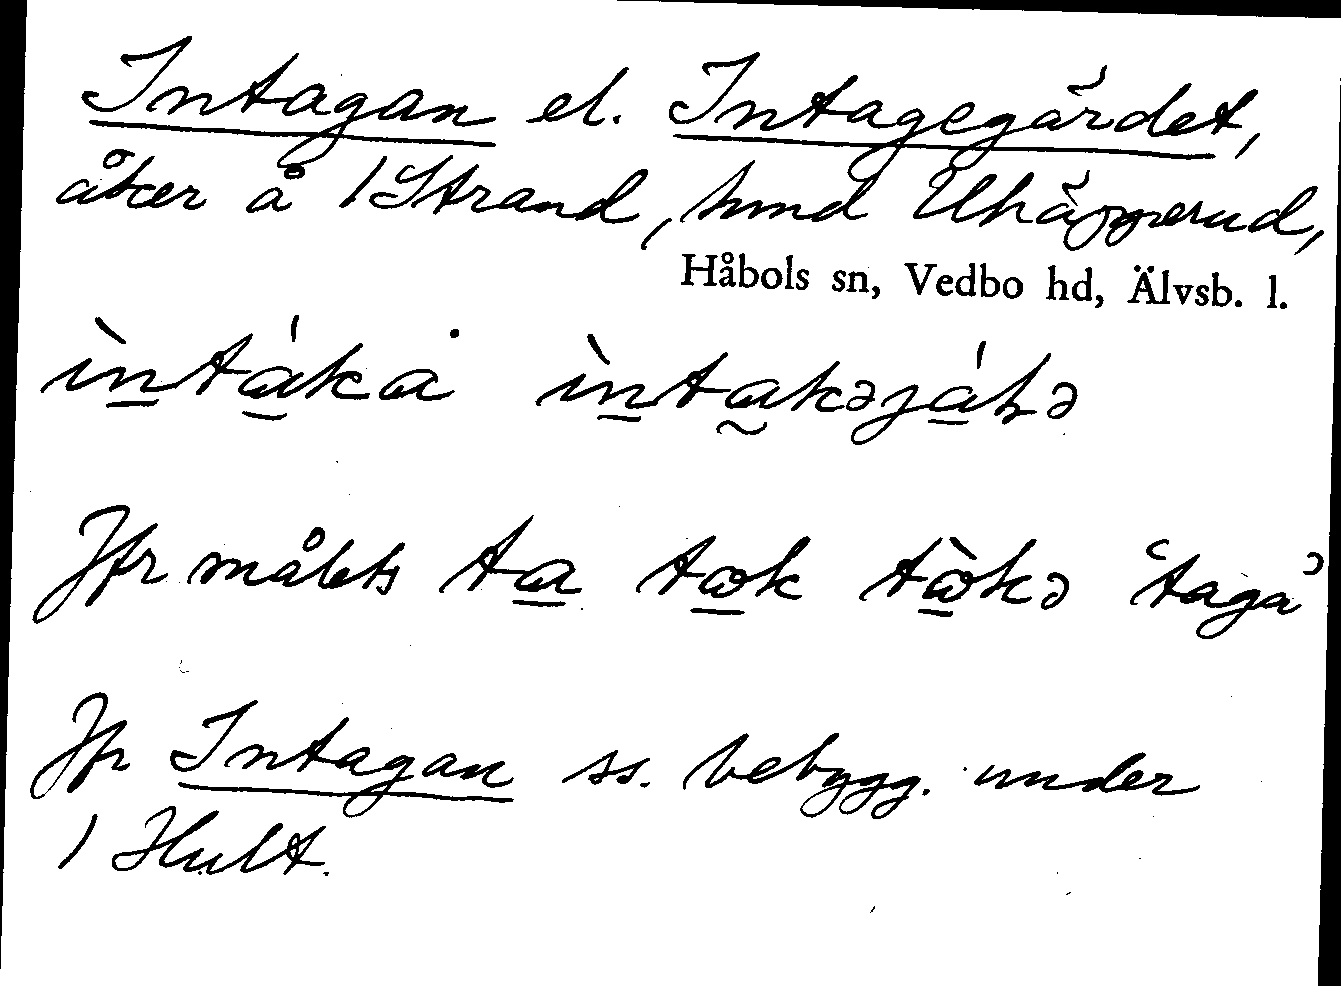 Intagan el. Intagegärdet,
åker å 1 Strand, hmd Uhäpperud,
Håbols sn, Vedbo hd, Älvsb. l.
ìntáka ìntakəjáḷə
Jfr målets ta tok tòkə 'taga'
Jfr Intagan ss. bebygg. under
1 Hult.